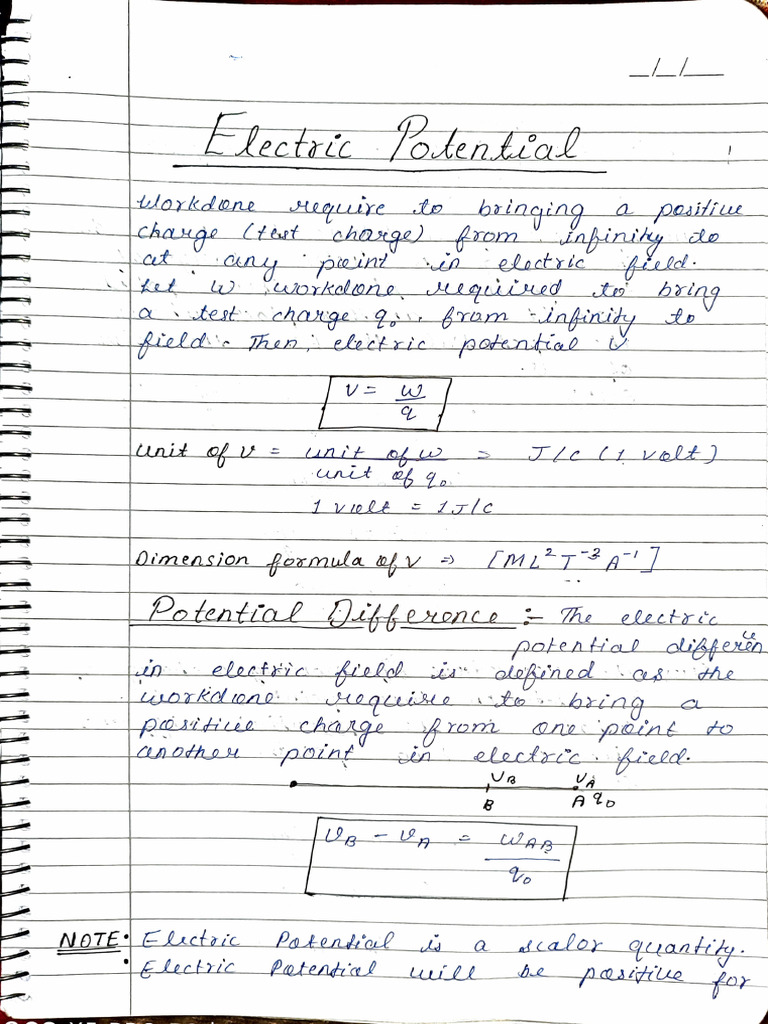 _/_/__
Electric Potential
Workdone require to bringing a positive
charge (test charge) from infinity to
at any point in electric field.
Let W workdone required to bring
a test charge q₀ from infinity to
field. Then, electric potential V
V = W/q
Unit of V = unit of W / unit of q₀ = J/C (1 volt)
1 volt = 1J/C
Dimension formula of V => [ML²T⁻³A⁻¹]
Potential Difference :- The electric
potential differen
ce
in electric field is defined as the
workdone require to bring a
positive charge from one point to
another point in electric field.
V_B V_A
B A q₀
V_B - V_A = W_AB / q₀
NOTE: • Electric Potential is a scalor quantity.
• Electric Potential will be positive for